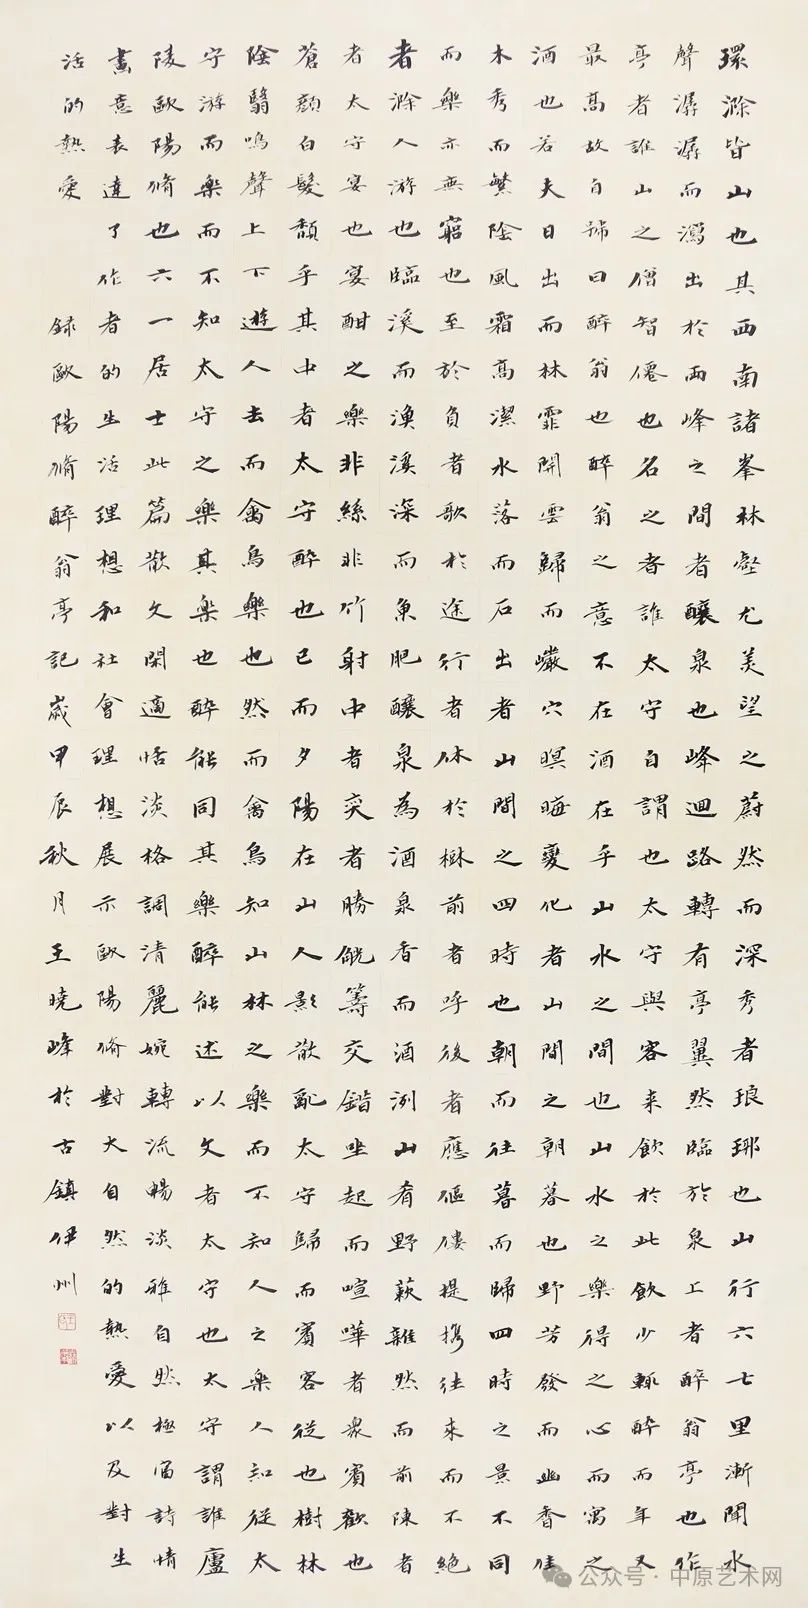 環滁皆山也其西南諸峯林壑尤美望之蔚然而深秀者琅琊也山行六七里漸聞水
聲潺潺而瀉出於兩峰之間者釀泉也峰迴路轉有亭翼然臨於泉上者醉翁亭也作
亭者誰山之僧智僊也名之者誰太守自謂也太守與客来飲於此飲少輒醉而年又
最高故自號曰醉翁也醉翁之意不在酒在乎山水之間也山水之樂得之心而寓之
酒也若夫日出而林霏開雲歸而巖穴暝晦變化者山間之朝暮也野芳發而幽香佳
木秀而繁陰風霜高潔水落而石出者山間之四時也朝而往暮而歸四時之景不同
而樂亦無窮也至於負者歌於途行者休於樹前者呼後者應傴僂提攜往來而不絕
者滁人游也臨溪而漁溪深而魚肥釀泉為酒泉香而酒洌山肴野蔌雜然而前陳者
者太守宴也宴酣之樂非絲非竹射中者奕者勝觥籌交錯坐起而喧嘩者衆賓歡也
蒼顏白髮頹乎其中者太守醉也已而夕陽在山人影散亂太守歸而賓客從也樹林
陰翳鳴聲上下遊人去而禽鳥樂也然而禽鳥知山林之樂而不知人之樂人知從太
守游而樂而不知太守之樂其樂也醉能同其樂醉能述以文者太守也太守謂誰廬
陵歐陽脩也六一居士此篇散文閑適恬淡格調清麗婉轉流暢淡雅自然極富詩情
畫意表達了作者的生活理想和社會理想展示歐陽脩對大自然的熱愛以及對生
活的熱愛 錄歐陽脩醉翁亭記歲甲辰秋月王曉峰於古鎮伊州
公众号·中原艺术网